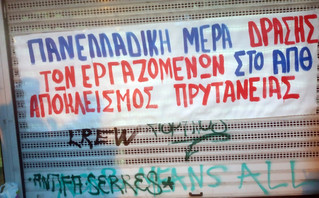 ΠΑΝΕΛΛΑΔΙΚΗ ΜΕΡΑ ΔΡΑΣΗΣ
ΤΩΝ ΕΡΓΑΖΟΜΕΝΩΝ ΣΤΟ ΑΠΘ
ΑΠΟΚΛΕΙΣΜΟΣ ΠΡΥΤΑΝΕΙΑΣ
CREW
MEANS ALL
ANTIFA SERRES